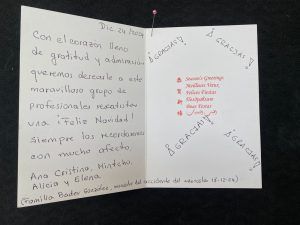 Dic. 24/2004
Con el corazón lleno
de gratitud y admiración
queremos desearle a este
maravilloso grupo de
profesionales rescatistas
una ¡Feliz Navidad!
Siempre los recordaremos
con mucho afecto,
Ana Cristina,
Alicia y Elena
(Familia Bader González, del accidente del 18-12-04)
¡GRACIAS!
¡GRACIAS!
Season's Greetings
Meilleurs Vœux
Felices Fiestas
¡GRACIAS!
¡GRACIAS!